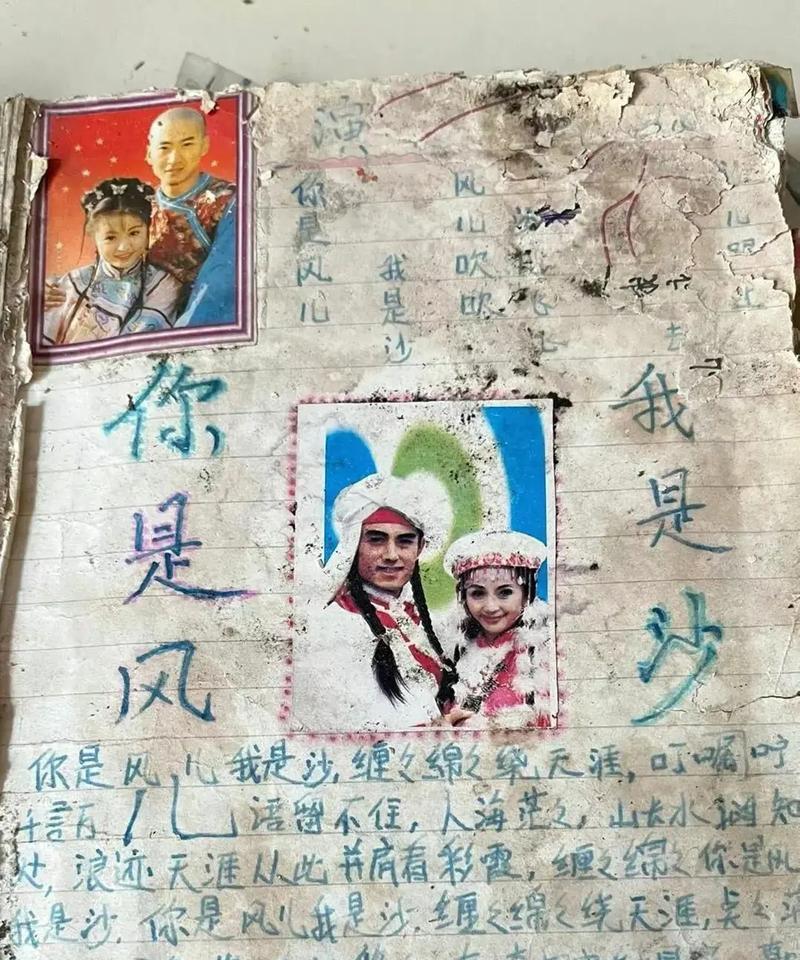 演
你是风儿
我是沙
风儿吹吹
去
你是风儿
我是沙
你是风儿我是沙,缠々绵々绕天涯,叮嘱咛
千言万语留不住,人海茫々,山长水阔知
浪迹天涯从此并肩看彩霞,缠々绵々你是风
我是沙.你是风儿我是沙.缠々绵々绕天涯,